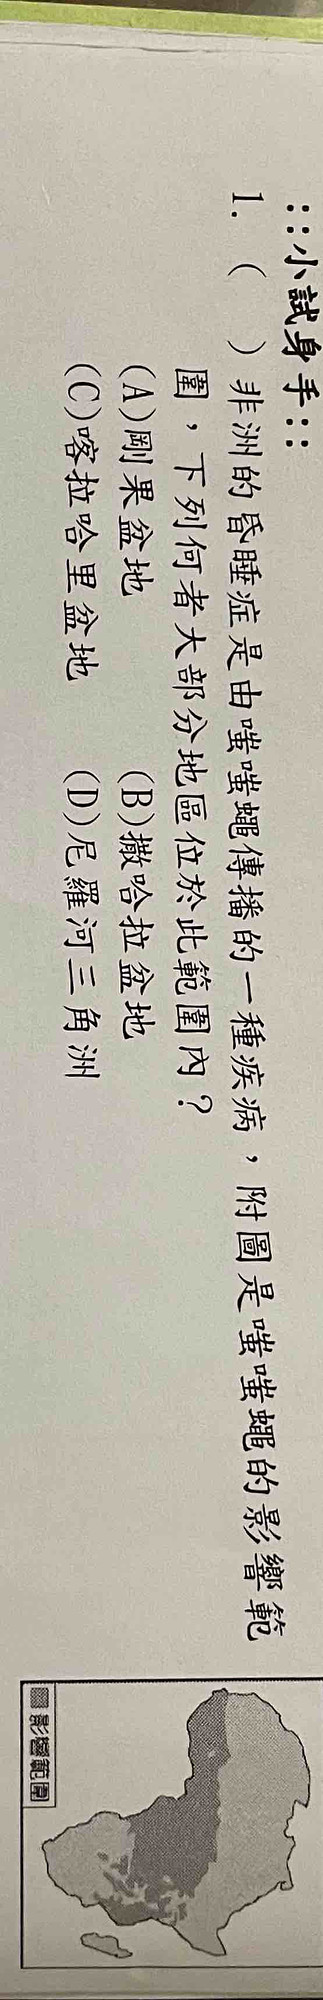 ::小試身手::
1. (　) 非洲的昏睡症是由嗤嗤蠅傳播的一種疾病，附圖是嗤嗤蠅的影響範
圍，下列何者大部分地區位於此範圍內？
(A)剛果盆地　(B)撒哈拉盆地
(C)喀拉哈里盆地　(D)尼羅河三角洲
影響範圍